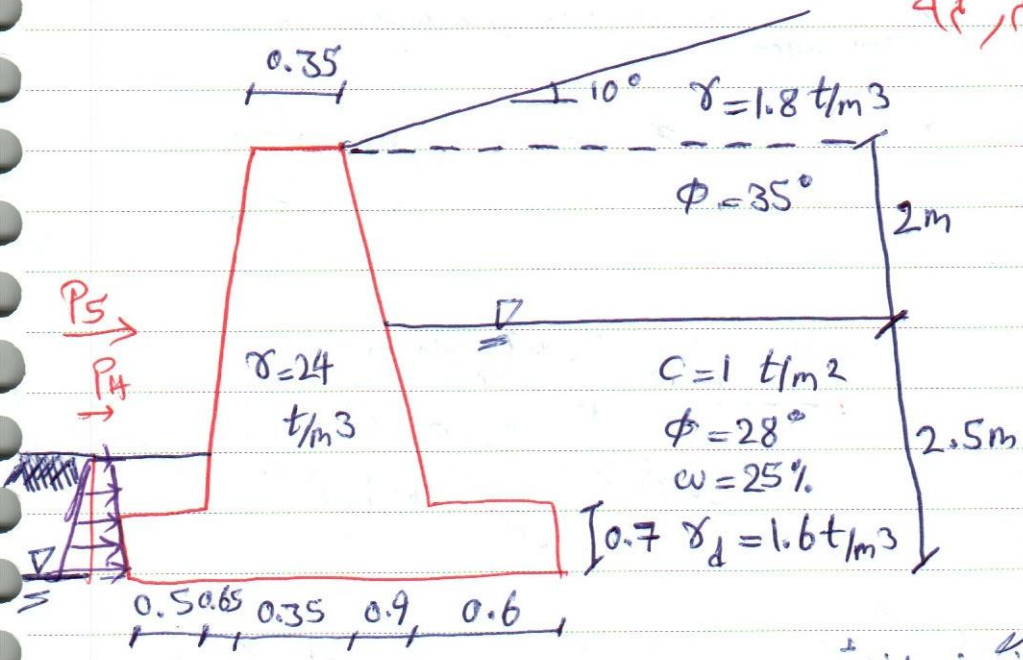 0.35
10° γ=1.8 t/m3
φ=35°
2m
P5
PH
γ=24
t/m3
C=1 t/m2
φ=28°
ω=25%
2.5m
0.7 γd=1.6t/m3
0.5 0.65 0.35 0.9 0.6